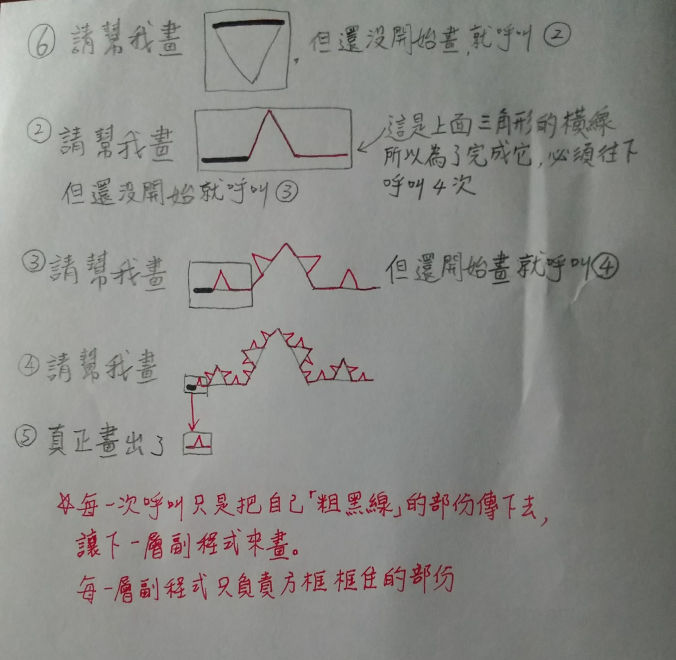 ⑥ 請幫我畫 , 但還沒開始畫,就呼叫②
② 請幫我畫
這是上面三角形的橫線
所以為了完成它,必須往下
呼叫4次
但還沒開始就呼叫③
③請幫我畫 但還開始畫就呼叫④
④請幫我畫
⑤真正畫出了
☆每一次呼叫只是把自己「粗黑線」的部份傳下去,
讓下一層副程式來畫。
每一層副程式只負責方框框住的部份